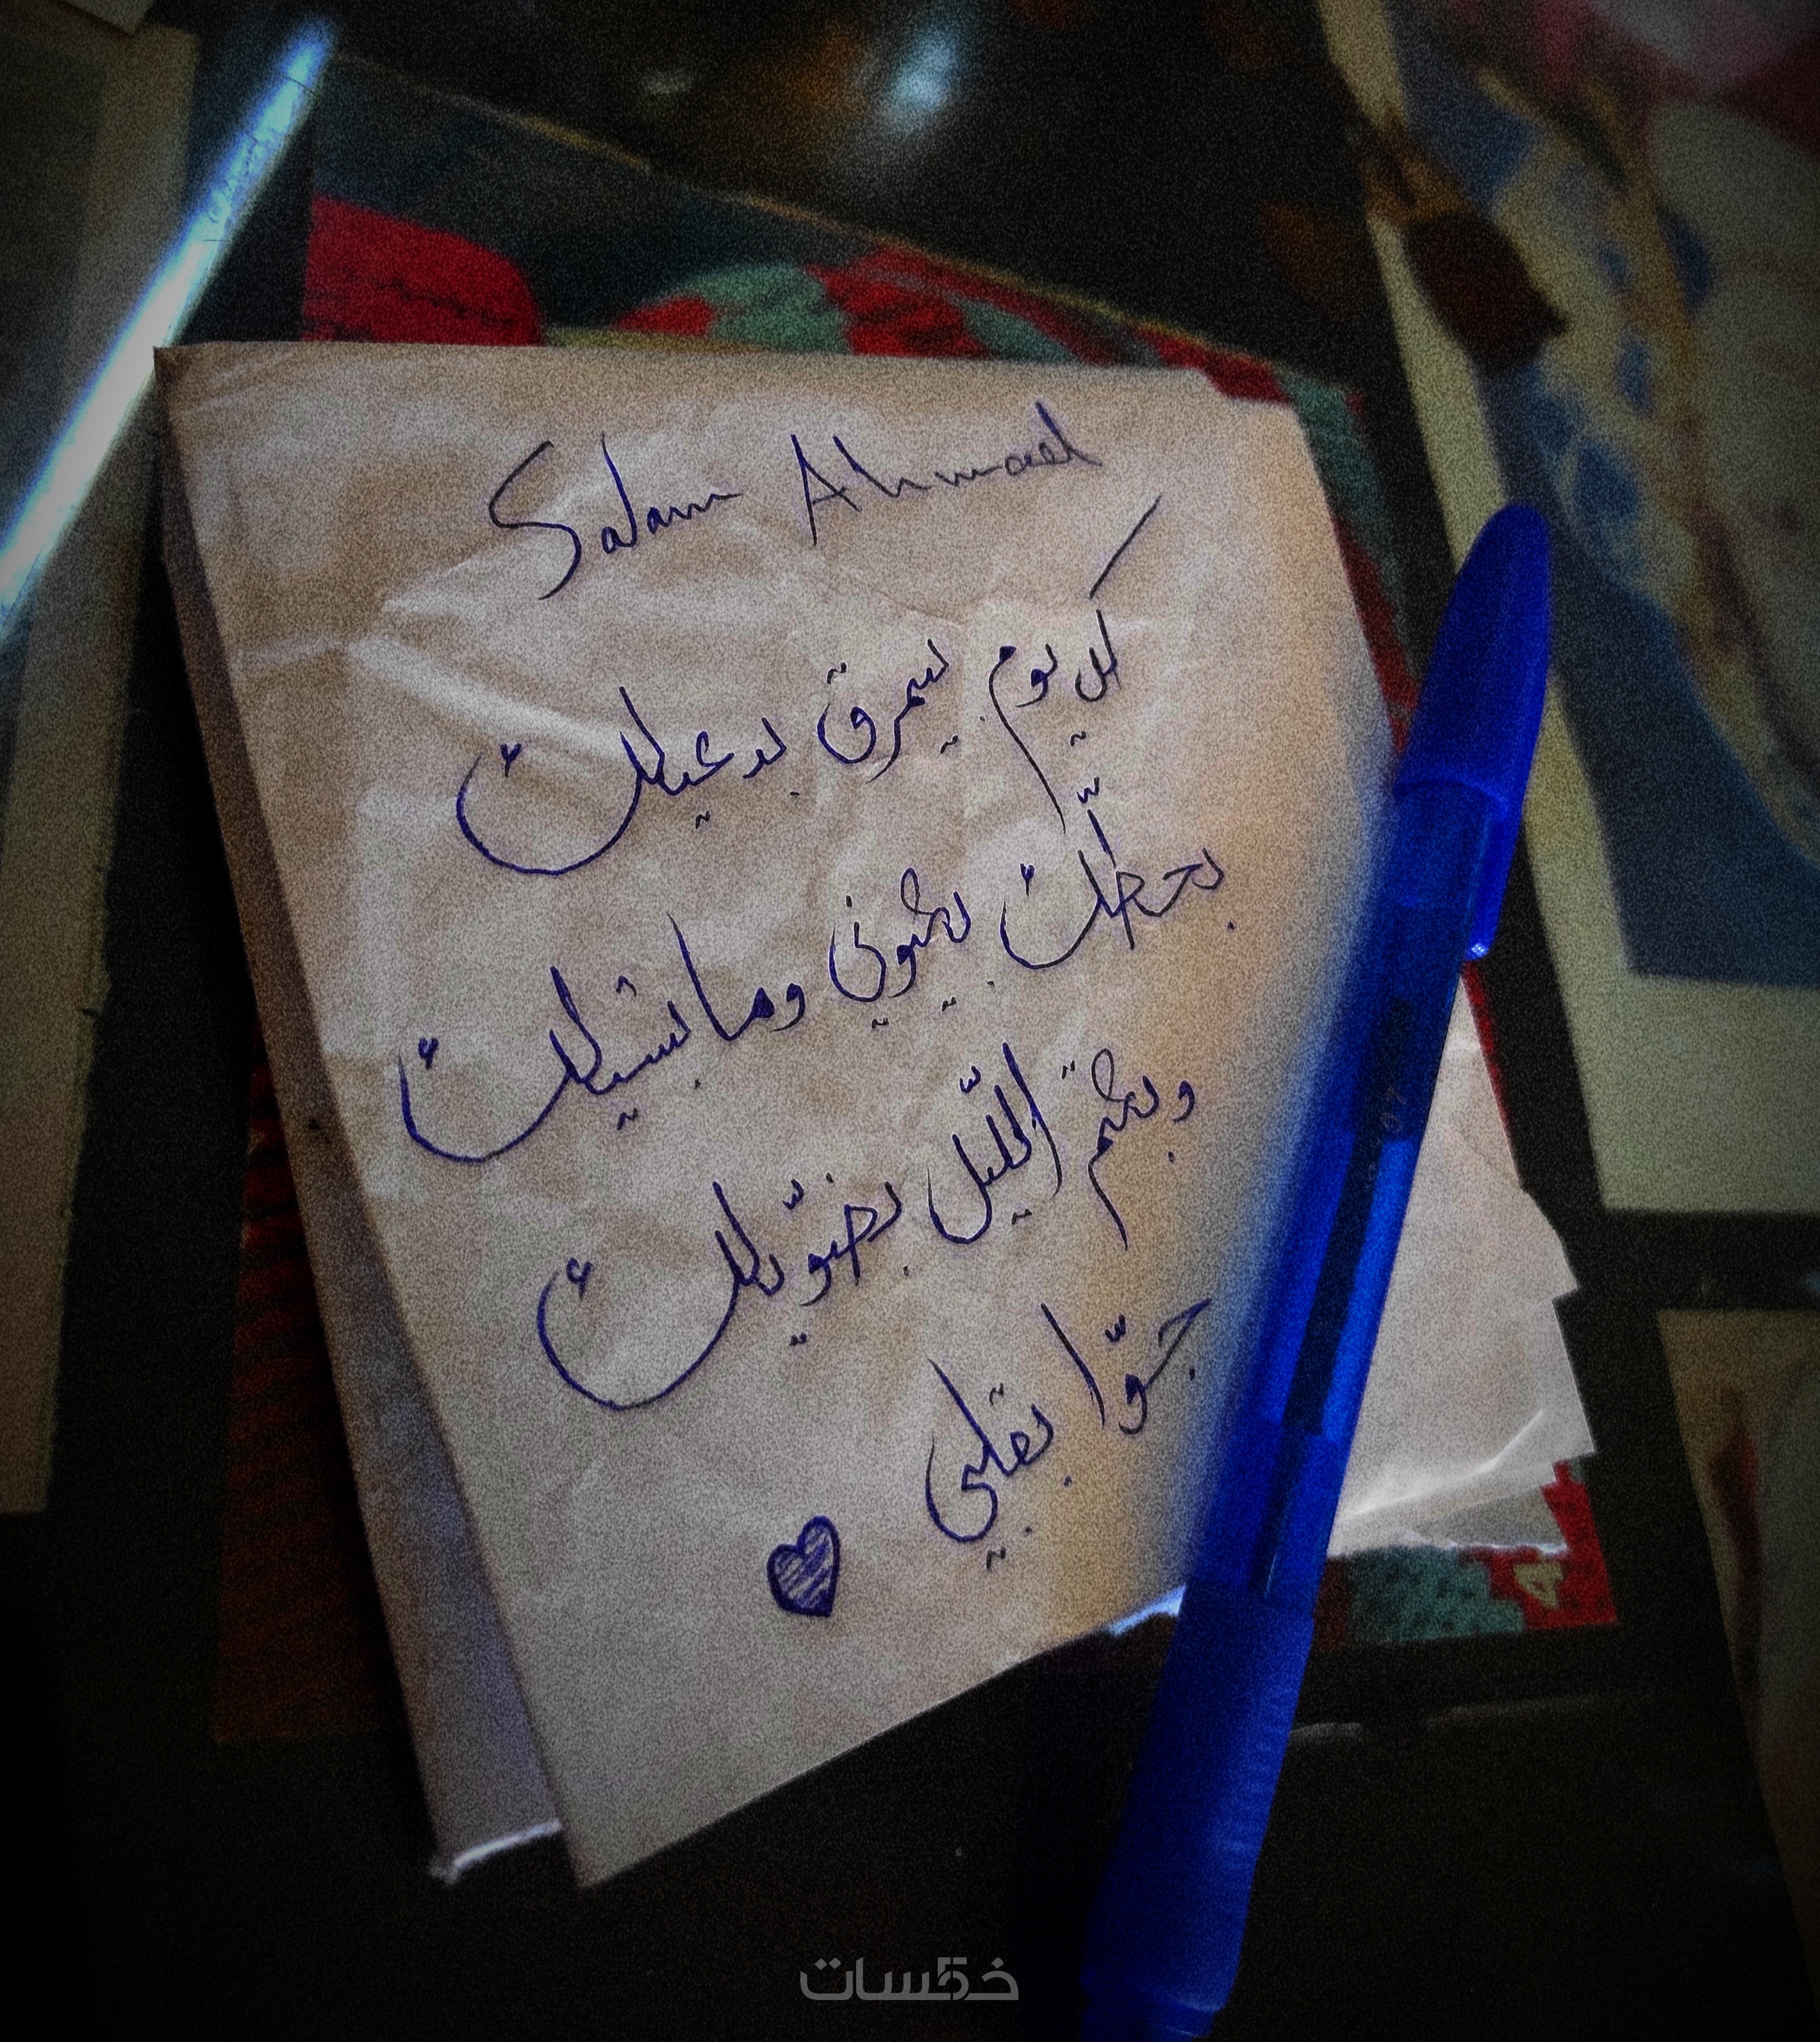 Salam Ahmad
كل يوم بيمرق بدعيلك
بحطّك بعيوني وما بشيلك
وبعتم اللّيل بضوّيلك
جوّا بقلبي
خمسات